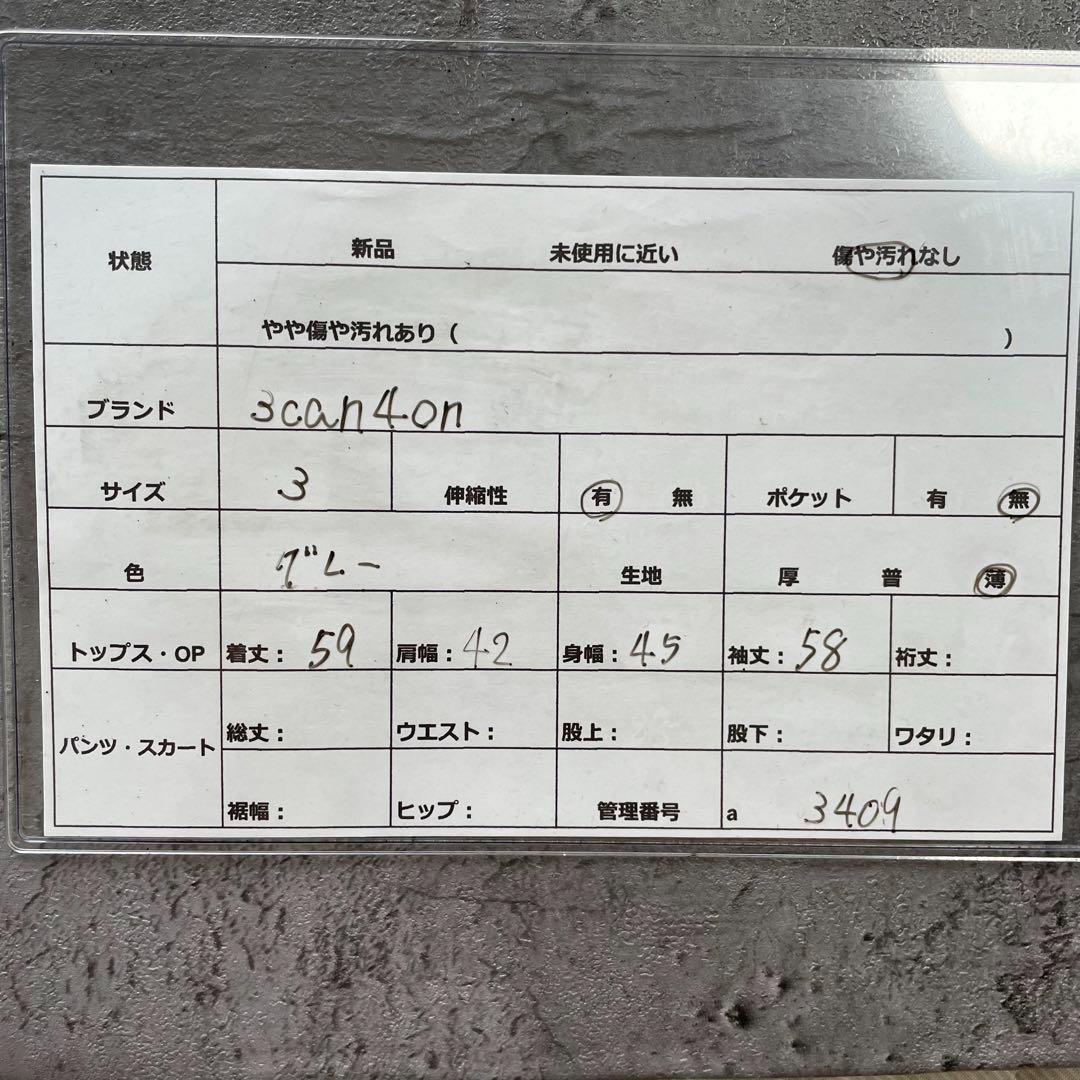 状態 新品 未使用に近い 傷や汚れなし
やや傷や汚れあり ( )
ブランド 3can4on
サイズ 3 伸縮性 有 無 ポケット 有 無
色 グレー 生地 厚 普 薄
トップス・OP 着丈: 59 肩幅: 42 身幅: 45 袖丈: 58 裄丈:
パンツ・スカート 総丈: ウエスト: 股上: 股下: ワタリ:
裾幅: ヒップ: 管理番号 a 3409